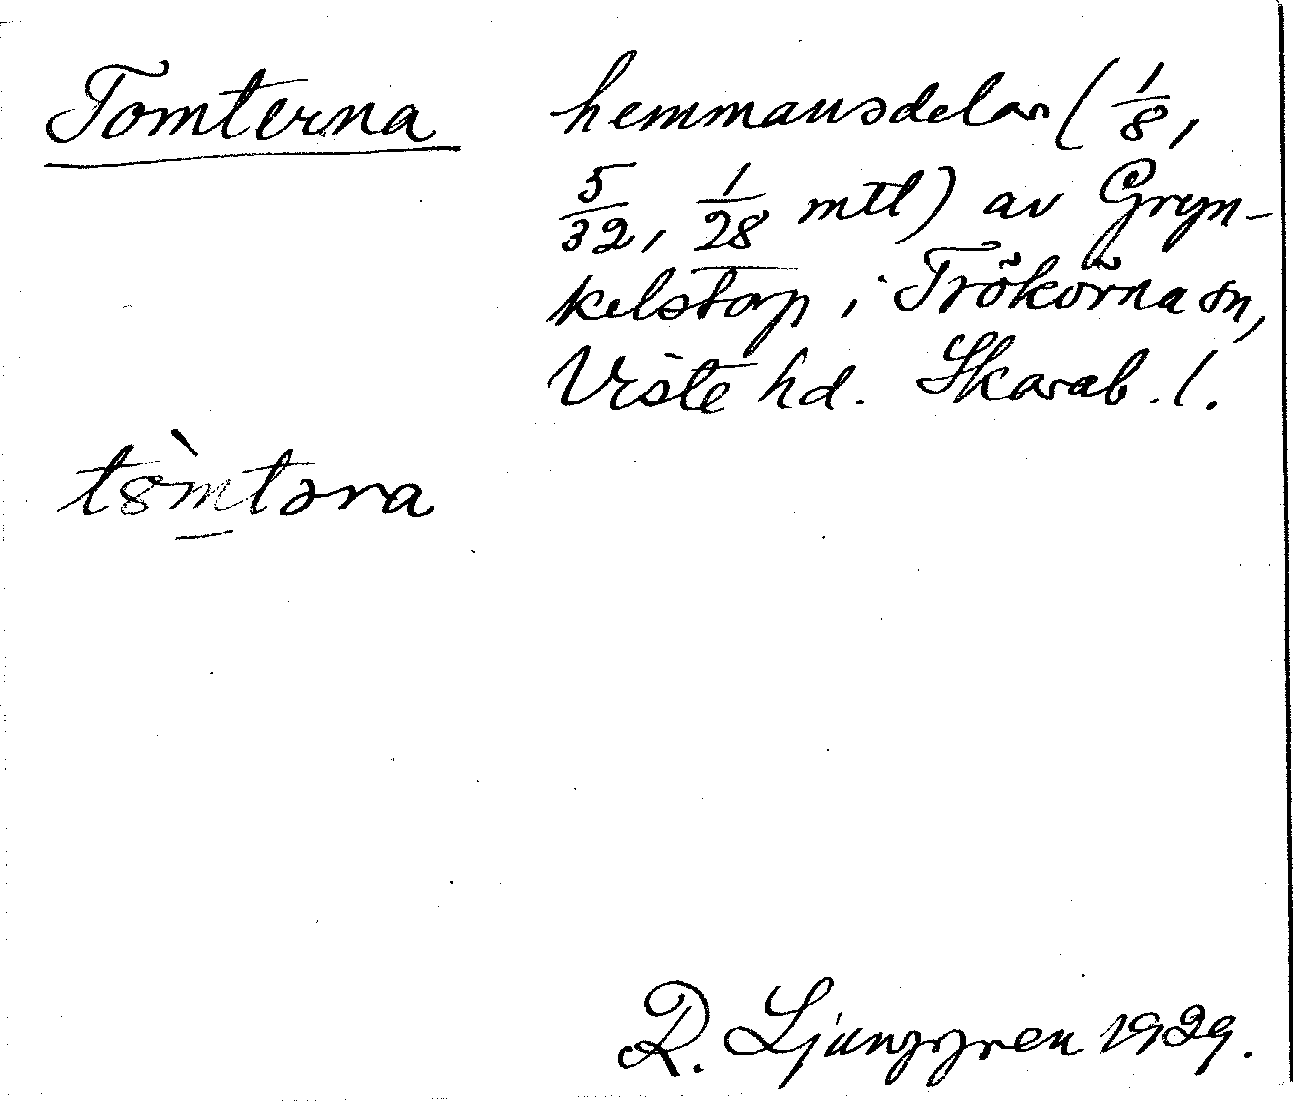 Tomterna hemmansdelar (1/8,
5/32, 1/28 mtl) av Gryn-
kelstorp i Trökörna sn,
Viste hd. Skarab. l.
tømtəra
R. Ljunggren 1929.